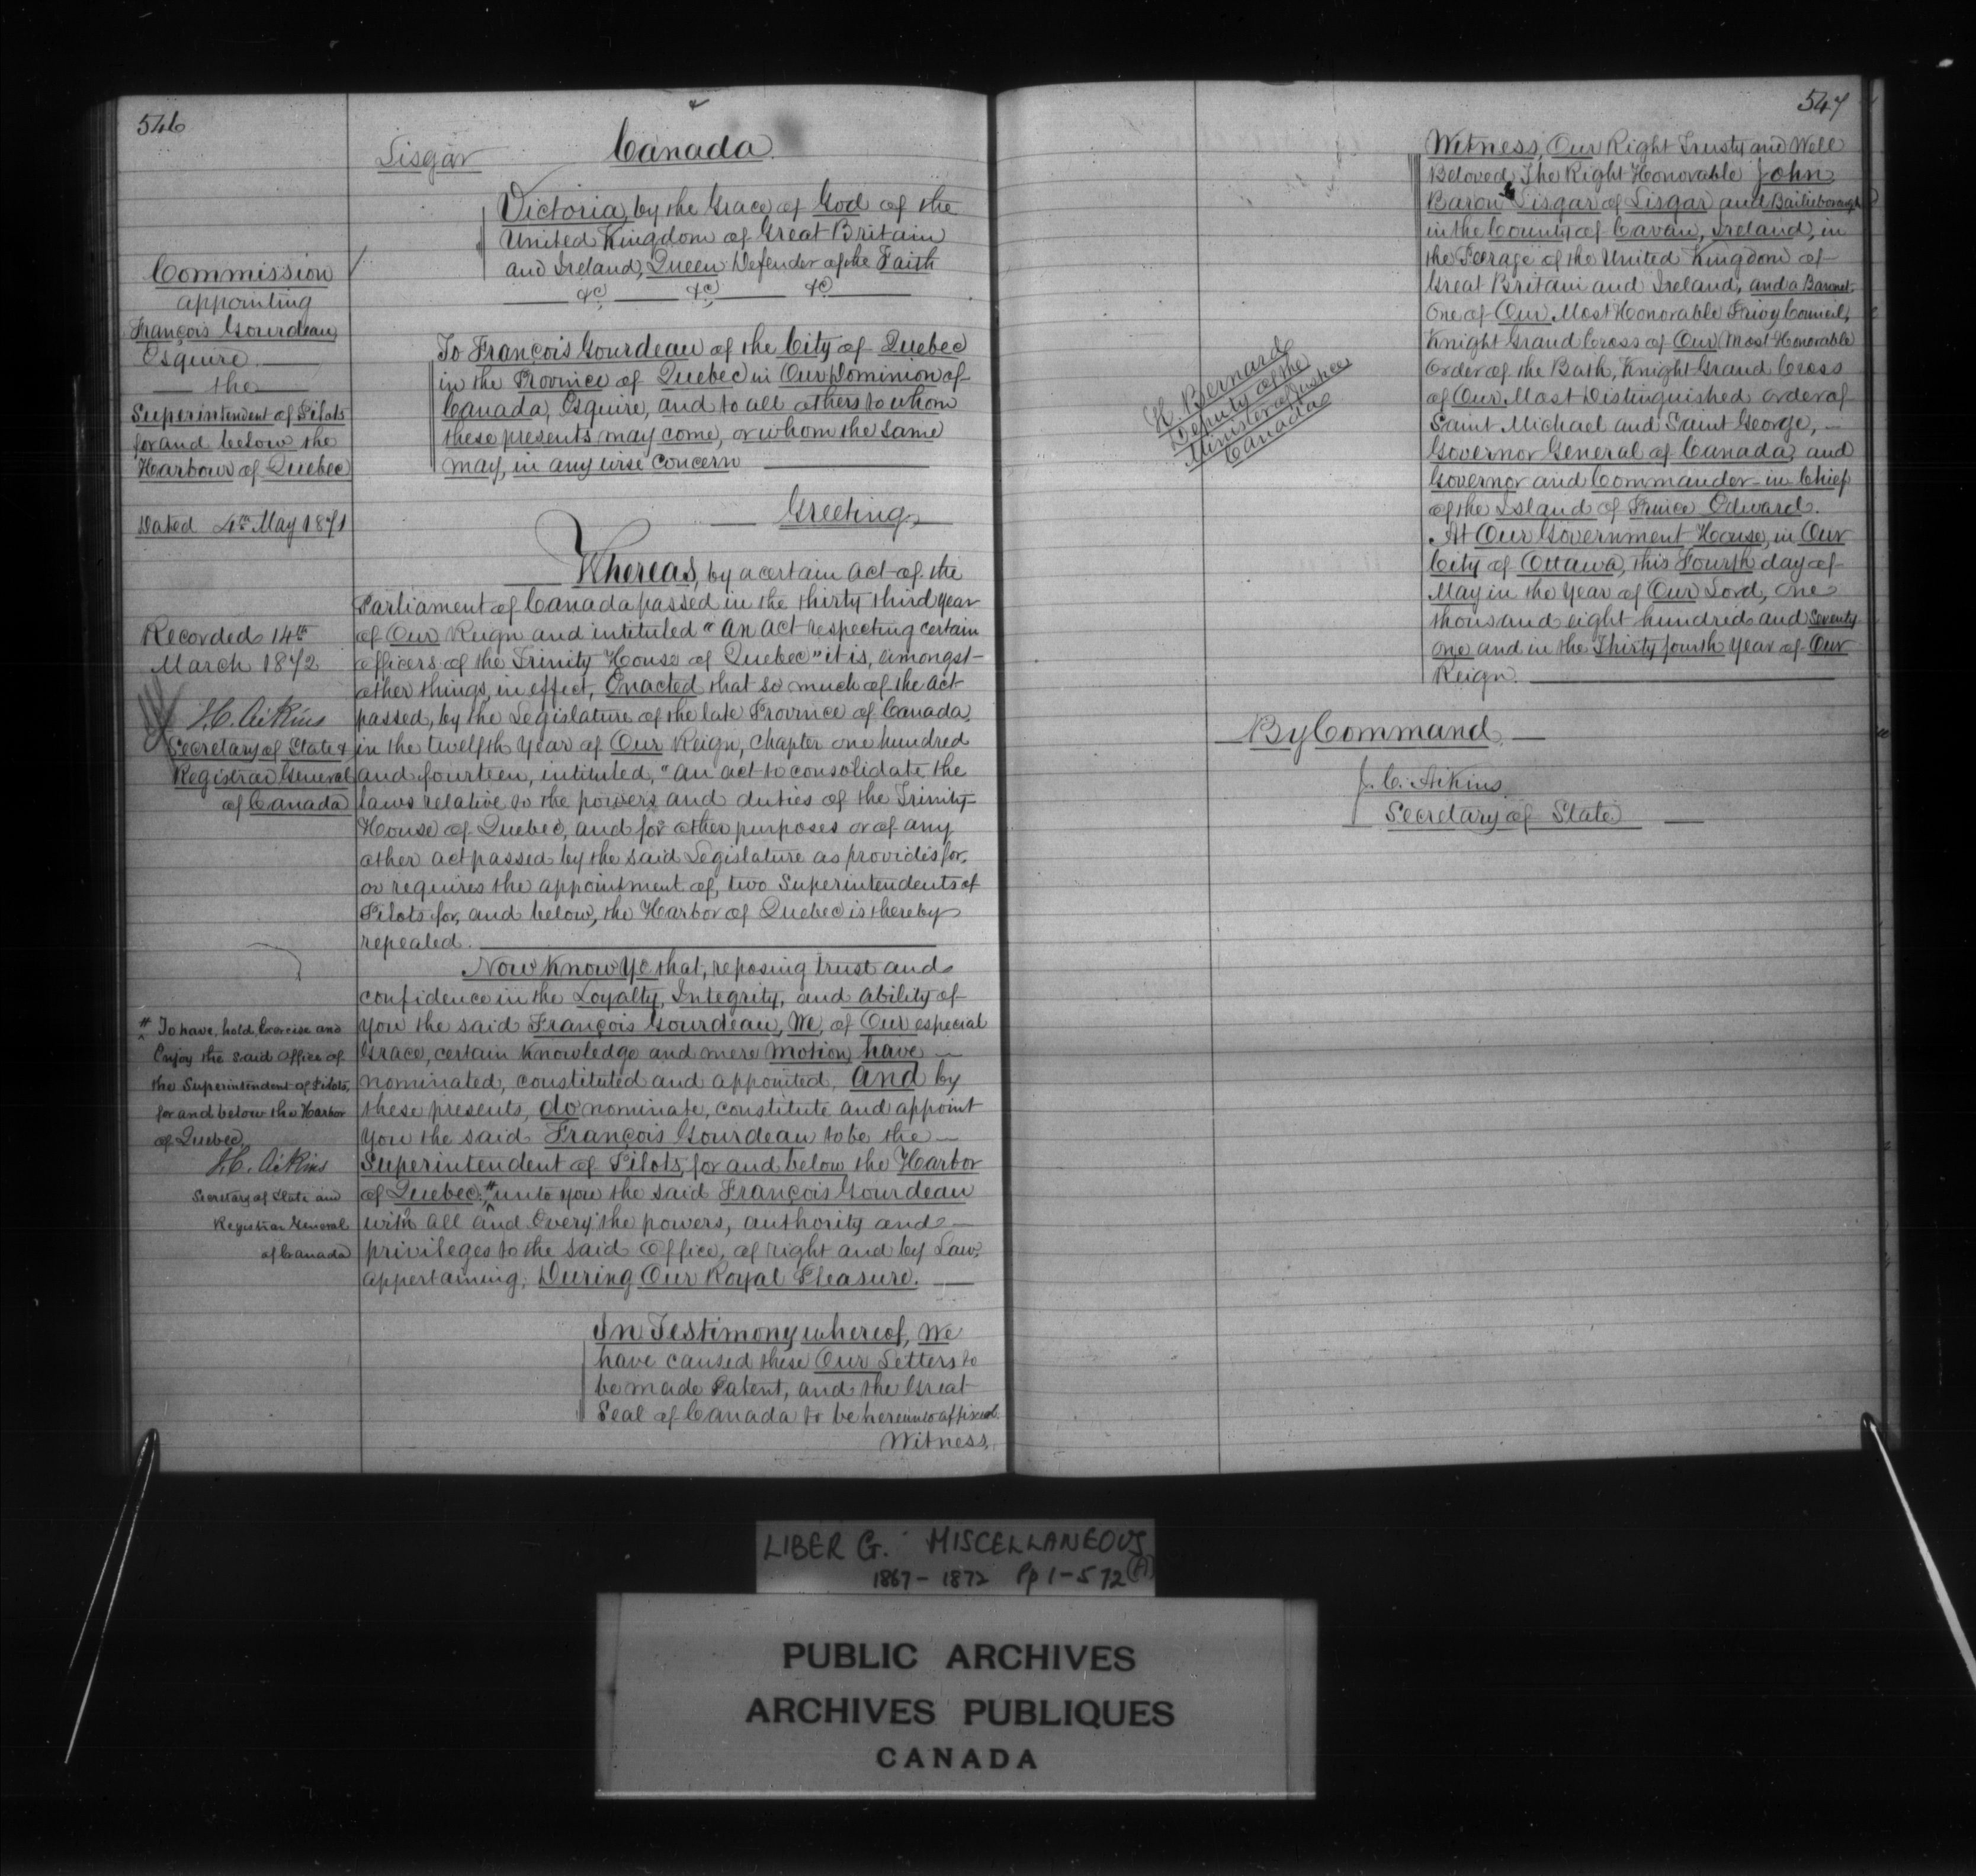 546
Commission
appointing
François Gourdeau
Esquire
the
Superintendent of Pilots
for and below the
Harbour of Quebec
Dated 4th May 1871
Recorded 14th
March 1872
J.C. Aikins
Secretary of State &
Registrar General
of Canada
# To have, hold, Exercise and
Enjoy the said Office of
the Superintendent of Pilots,
for and below the Harbor
of Quebec,
J.C. Aikins
Secretary of State and
Registrar General
of Canada
Lisgar
Canada
Victoria, by the Grace of God of the
United Kingdom of Great Britain
and Ireland, Queen Defender of the Faith
&c &c &c
To François Gourdeau of the City of Quebec
in the Province of Quebec in Our Dominion of
Canada, Esquire, and to all others to whom
these presents may come, or whom the same
may, in any wise concern
Greeting
Whereas, by a certain act of the
Parliament of Canada passed in the thirty third year
of Our Reign and intituled "An act respecting certain
officers of the Trinity House of Quebec" it is, amongst
other things, in effect, Enacted that so much of the act
passed, by the Legislature of the late Province of Canada,
in the twelfth Year of Our Reign, Chapter one hundred
and fourteen, intituled, "An act to consolidate the
laws relative to the powers and duties of the Trinity
House of Quebec, and for other purposes or of any
other act passed by the said Legislature as provides for,
or requires the appointment of, two Superintendents of
Pilots for, and below, the Harbor of Quebec is thereby
repealed.
Now Know Ye that, reposing trust and
confidence in the Loyalty, Integrity, and Ability of
You the said François Gourdeau, We, of Our especial
Grace, certain Knowledge and mere Motion, have
nominated, constituted and appointed, And by
these presents, do nominate, constitute and appoint
You the said François Gourdeau to be the
Superintendent of Pilots, for and below the Harbor
of Quebec, # unto you the said François Gourdeau
with all and Every the powers, authority and
privileges to the said Office, of right and by Law,
appertaining, During Our Royal Pleasure.
In Testimony whereof, We
have caused these Our Letters to
be made Patent, and the Great
Seal of Canada to be hereunto affixed.
Witness,
547
H. Bernard
Deputy of the
Minister of Justice
Canada
Witness, Our Right Trusty and Well
Beloved, The Right Honorable John
Baron Lisgar of Lisgar and Bailieborough
in the County of Cavan, Ireland, in
the Peerage of the United Kingdom of
Great Britain and Ireland, and a Baronet,
One of Our Most Honorable Privy Council,
Knight Grand Cross of Our Most Honorable
Order of the Bath, Knight Grand Cross
of Our Most Distinguished order of
Saint Michael and Saint George,
Governor General of Canada, and
Governor and Commander in Chief
of the Island of Prince Edward.
At Our Government House, in Our
City of Ottawa, this Fourth day of
May in the Year of Our Lord, one
thousand eight hundred and seventy
one and in the Thirty fourth Year of Our
Reign.
By Command,
J. C. Aikins
Secretary of State
LIBER G. MISCELLANEOUS
1867-1872 Pp 1-572 (A)
PUBLIC ARCHIVES
ARCHIVES PUBLIQUES
CANADA